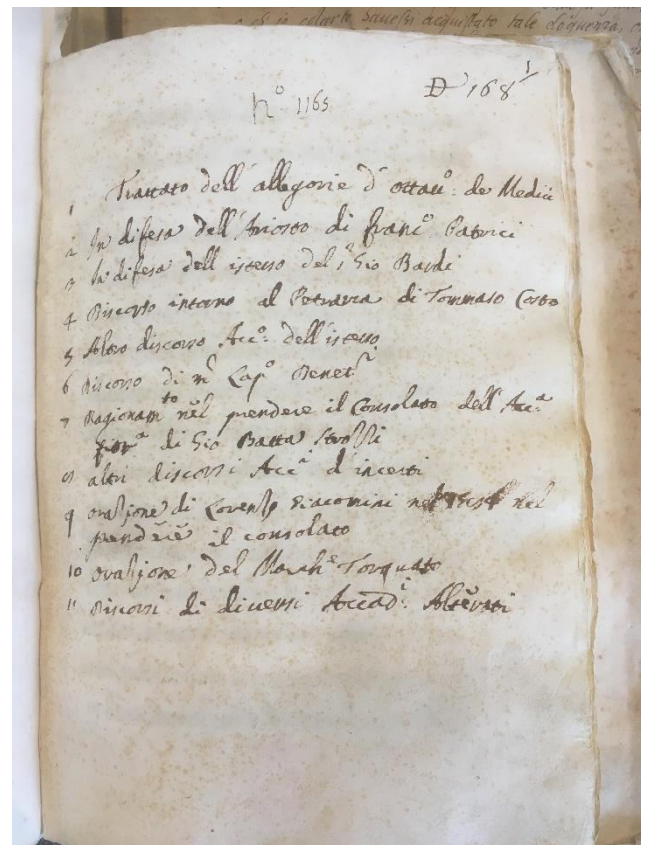 acquistato tale eloquenza,
D 168 1/
n.º 1165
1 Trattato dell'allegorie d'Ottauº: de Medici
2 In difesa dell'Ariosto di francº Patrici
3 In difesa dell istesso del Sʳ Gio Bardi
4 Discorso intorno al Petrarca di Tommaso Costo
5 Altro discorso Accº: dell'istesso
6 Discorso di mʳ Capº Benetᵗⁱ
7 Ragionamᵗᵒ nel prendere il Consolato dell'Accᵃ
fiorᵃ di Gio Batta Strozzi
8 altri discorsi Accⁱ d'incerti
9 orazione di Lorenzo Giacomini nel
prendere il consolato
10 orazione del Marchᵉ Torquato
11 Discorsi di diuersi Accadⁱ: Alterati